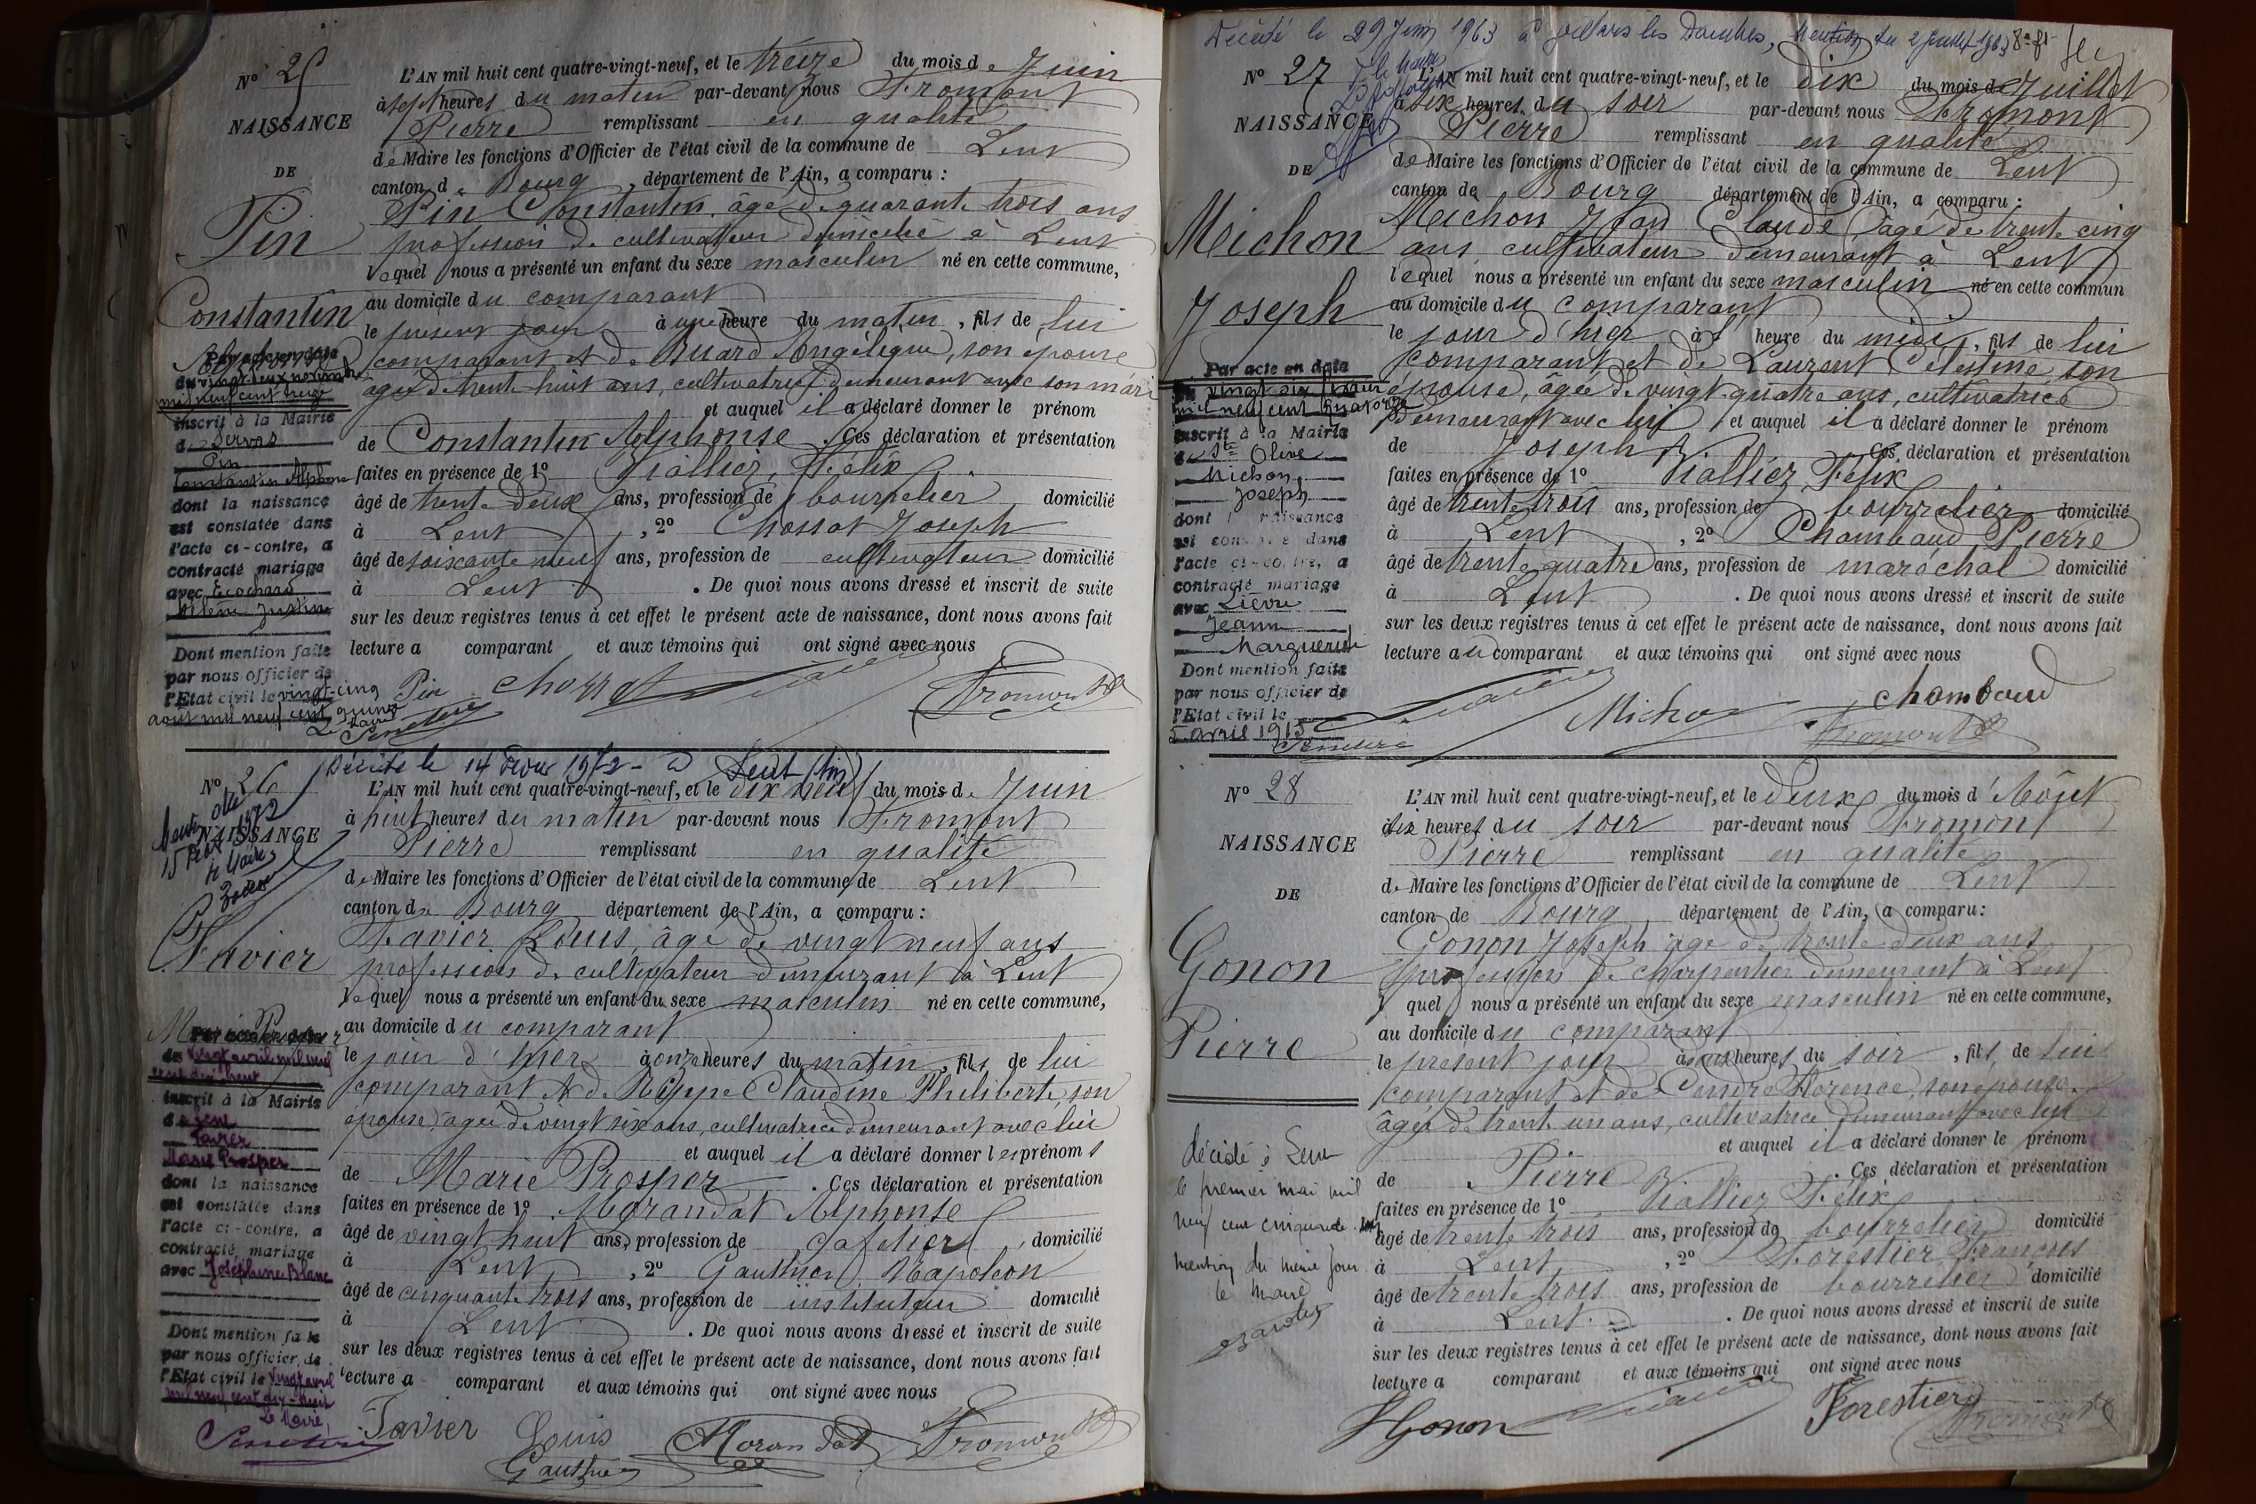 N° 25
NAISSANCE
DE
Pin
Constantin
Alphonse
Par acte en date
du vingt deux novembre
mil neuf cent treize
inscrit à la Mairie
de Servas
Pin
Constantin Alphonse
dont la naissance
est constatée dans
l'acte ci-contre, a
contracté mariage
avec Ecochard
Justine
Dont mention faite
par nous officier de
l'Etat civil le vingt-cinq
aout mil neuf cent quinze
Le Maire
L'AN mil huit cent quatre-vingt-neuf, et le treize du mois de Juin
à sept heures du matin par-devant nous Fromont
Pierre remplissant en qualité
de Maire les fonctions d'Officier de l'état civil de la commune de Lent
canton de Bourg, département de l'Ain, a comparu :
Pin Constantin âgé de quarante trois ans
profession de cultivateur domicilié à Lent
lequel nous a présenté un enfant du sexe masculin né en cette commune,
au domicile du comparant
le présent jour à une heure du matin, fils de lui
comparant et de Buard Angélique, son épouse
âgée de trente huit ans, cultivatrice demeurant avec son mari
et auquel il a déclaré donner le prénom
de Constantin Alphonse. Ces déclaration et présentation
faites en présence de 1° Vialliez Félix
âgé de trente deux ans, profession de bourrelier domicilié
à Lent, 2° Chossat Joseph
âgé de soixante neuf ans, profession de cultivateur domicilié
à Lent. De quoi nous avons dressé et inscrit de suite
sur les deux registres tenus à cet effet le présent acte de naissance, dont nous avons fait
lecture a comparant et aux témoins qui ont signé avec nous
Pin Chossat Fromont
Décédé le 14 1972 - à Lent (Ain)
N° 26
NAISSANCE
Favier
Marie Prosper
Par acte en date
du vingt avril mil neuf
cent dix-huit
inscrit à la Mairie
de Lent
Favier
Marie Prosper
dont la naissance
est constatée dans
l'acte ci-contre, a
contracté mariage
avec Joséphine Blanc
Dont mention faite
par nous officier de
l'Etat civil le vingt avril
mil neuf cent dix-huit
Le Maire,
L'AN mil huit cent quatre-vingt-neuf, et le dix neuf du mois de Juin
à huit heures du matin par-devant nous Fromont
Pierre remplissant en qualité
de Maire les fonctions d'Officier de l'état civil de la commune de Lent
canton de Bourg département de l'Ain, a comparu :
Favier Louis, âgé de vingt neuf ans
profession de cultivateur demeurant à Lent
lequel nous a présenté un enfant du sexe masculin né en cette commune,
au domicile du comparant
le jour d'hier à onze heures du matin, fils de lui
comparant & de Nippe Claudine Philiberte, son
épouse, agée de vingt six ans, cultivatrice demeurant avec lui
et auquel il a déclaré donner les prénoms
de Marie Prosper. Ces déclaration et présentation
faites en présence de 1° Morandat Alphonse
âgé de vingt huit ans, profession de cafetier, domicilié
à Lent, 2° Gauthier Napoléon
âgé de cinquante trois ans, profession de instituteur domicilié
à Lent. De quoi nous avons dressé et inscrit de suite
sur les deux registres tenus à cet effet le présent acte de naissance, dont nous avons fait
lecture a comparant et aux témoins qui ont signé avec nous
Favier Louis Morandat Fromont
Gauthier
Décédé le 29 Juin 1963 à Villars les Dombes, mention du 2 Juillet 1963
N° 27
NAISSANCE
DE
Michon
Joseph
Par acte en date
du vingt six
mil neuf cent quatorze
inscrit à la Mairie
de Ste Olive
Michon
Joseph
dont la naissance
est constatée dans
l'acte ci-contre, a
contracté mariage
avec Lièvre
Jeanne
Marguerite
Dont mention faite
par nous officier de
l'Etat civil le
5 avril 1915
L'AN mil huit cent quatre-vingt-neuf, et le dix du mois de Juillet
à six heures du soir par-devant nous Fromont
Pierre remplissant en qualité
de Maire les fonctions d'Officier de l'état civil de la commune de Lent
canton de Bourg département de l'Ain, a comparu :
Michon Jean Claude âgé de trente cinq
ans, cultivateur demeurant à Lent
lequel nous a présenté un enfant du sexe masculin né en cette commun
au domicile du comparant
le jour d'hier à heure du midi, fils de lui
comparant et de Laurent Célestine son
épouse, âgée de vingt-quatre ans, cultivatrice
demeurant avec lui et auquel il a déclaré donner le prénom
de Joseph. Ces déclaration et présentation
faites en présence de 1° Vialliez Félix
âgé de trente trois ans, profession de bourrelier domicilié
à Lent, 2° Chambaud Pierre
âgé de trente quatre ans, profession de maréchal domicilié
à Lent. De quoi nous avons dressé et inscrit de suite
sur les deux registres tenus à cet effet le présent acte de naissance, dont nous avons fait
lecture au comparant et aux témoins qui ont signé avec nous
Michon Chambaud
Fromont
N° 28
NAISSANCE
DE
Gonon
Pierre
décédé à Lent
le premier mai mil
neuf cent cinquante
mention du même jour
le maire
L'AN mil huit cent quatre-vingt-neuf, et le deux du mois d'Août
à six heures du soir par-devant nous Fromont
Pierre remplissant en qualité
de Maire les fonctions d'Officier de l'état civil de la commune de Lent
canton de Bourg, département de l'Ain, a comparu :
Gonon Joseph âgé de trente deux ans
profession de charpentier demeurant à Lent
lequel nous a présenté un enfant du sexe masculin né en cette commune,
au domicile du comparant
le présent jour à heures du soir, fils de lui
comparant et de Florence, son épouse
âgée de trente un ans, cultivatrice demeurant avec lui
et auquel il a déclaré donner le prénom
de Pierre. Ces déclaration et présentation
faites en présence de 1° Vialliez Félix
âgé de trente trois ans, profession de bourrelier domicilié
à Lent, 2° Forestier François
âgé de trente trois ans, profession de bourrelier domicilié
à Lent. De quoi nous avons dressé et inscrit de suite
sur les deux registres tenus à cet effet le présent acte de naissance, dont nous avons fait
lecture a comparant et aux témoins qui ont signé avec nous
Gonon Forestier Fromont